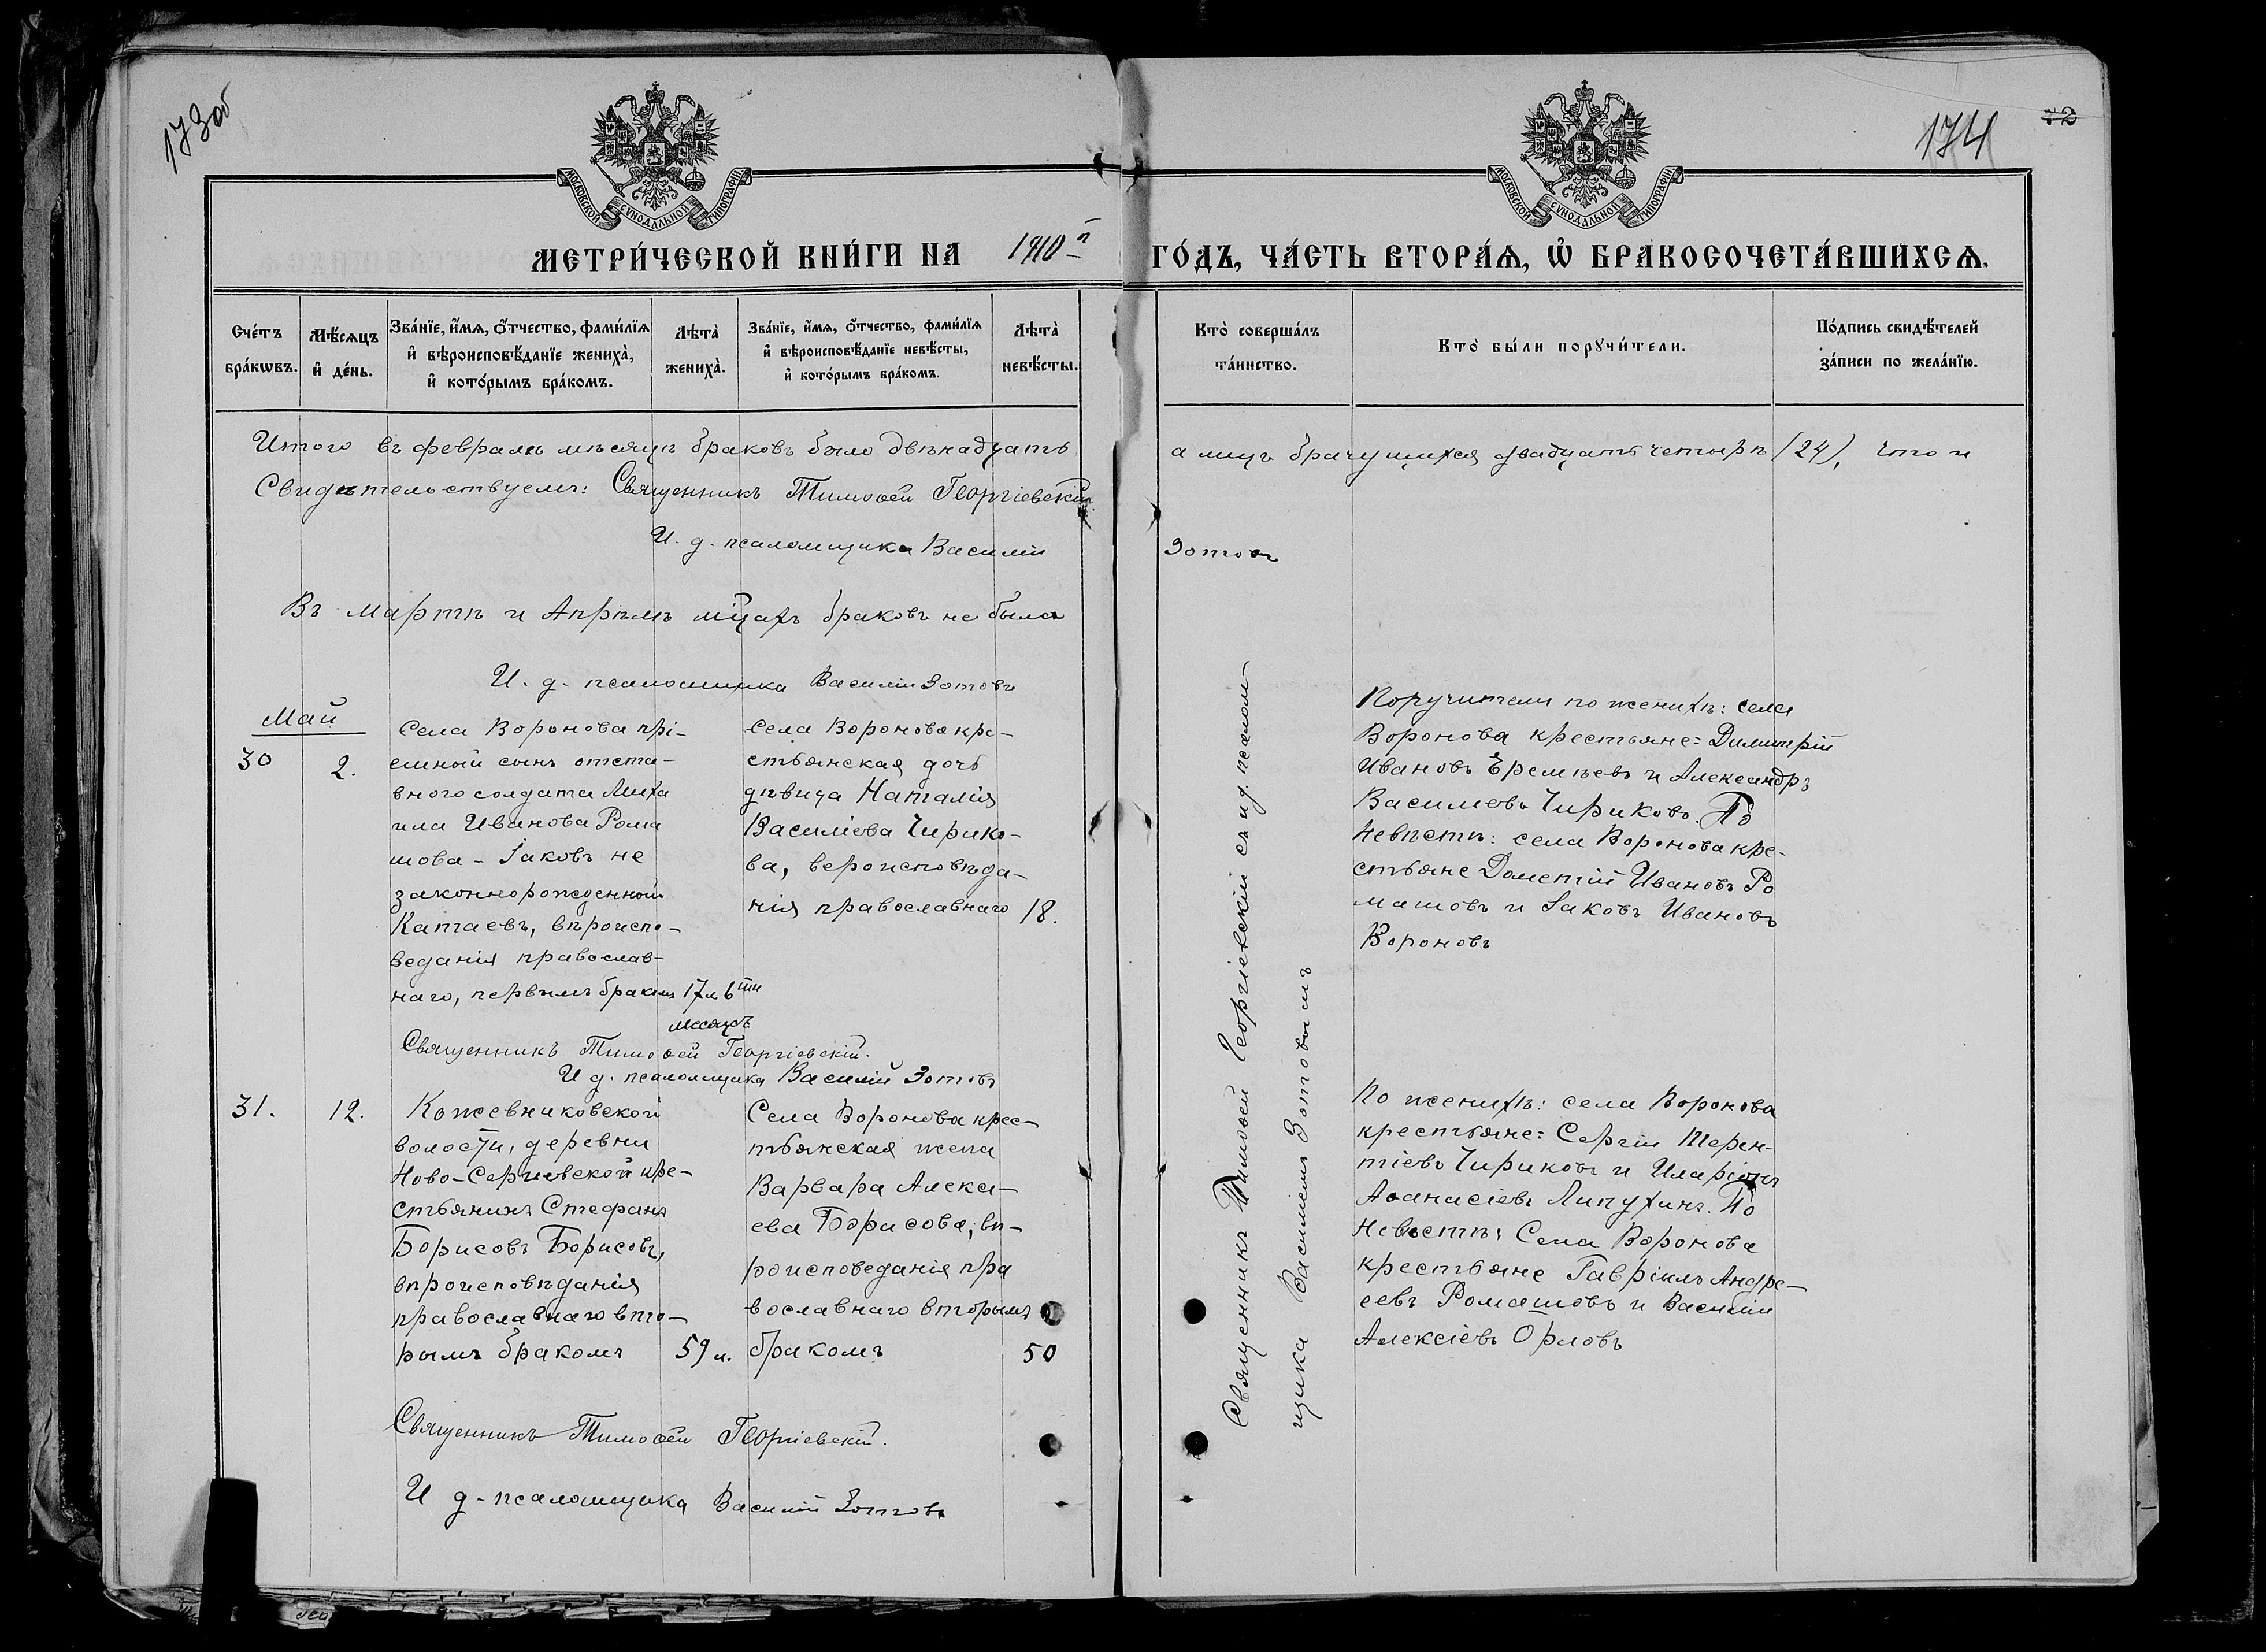 173об
174
72
МОСКОВСКОЙ СѴНОДАЛЬНОЙ ТИПОГРАФІИ
МОСКОВСКОЙ СѴНОДАЛЬНОЙ ТИПОГРАФІИ
МЕТРИ́ЧЕСКОЙ КНИ́ГИ НА 1910 г ГО́ДЪ, ЧА́СТЬ ВТОРА́Ѧ, Ѽ БРАКОСОЧЕТА́ВШИХСѦ.
Сче́тъ бра́кѡвъ.
Мѣ́сѧцъ и҆ де́нь.
Зва́нїе, и҆́мѧ, ѻ҆́тчество, фами́лїѧ и҆ вѣроисповѣ́данїе жениха̀, и҆ кото́рымъ бра́комъ.
Лѣта̀ жениха̀.
Зва́нїе, и҆́мѧ, ѻ҆́тчество, фами́лїѧ и҆ вѣроисповѣ́данїе невѣ́сты, и҆ кото́рымъ бра́комъ.
Лѣта̀ невѣ́сты.
Кто̀ соверша́лъ та́инство.
Кто̀ бы́ли порꙋчи́тели.
По́дпись свидѣ́телей за́писи по жела́нїю.
Итого въ февралѣ мѣсяцѣ браковъ было двѣнадцать а лицъ брачущихся двадцать четырѣ (24), что и
Свидѣтельствуемъ: Священникъ Тимоѳей Георгіевскій
И. д. псаломщика Василій Зотовъ
Въ Мартѣ и Апрѣлѣ мцахъ браковъ не было
И. д. псаломщика Василій Зотовъ
Май
30
2.
Села Воронова прі-
емный сынъ отста-
вного солдата Миха
ила Иванова Рома
шова - Іаковъ не
законнорожденный
Катаевъ, вѣроиспо-
веданія православ-
наго, первымъ бракомъ
17 л 6ти
месяцъ
Села Воронова кре-
стьянская дочь
дѣвица Наталія
Василіева Чирико-
ва, вероисповѣда-
нія православнаго
18.
Поручители по женихѣ: села
Воронова крестьяне: Димитрій
Ивановъ Еремѣевъ и Александръ
Василіевъ Чириковъ. По
невѣстѣ: села Воронова кре-
стьяне Дометій Ивановъ Ро
машовъ и Іаковъ Ивановъ
Вороновъ
Священникъ Тимоѳей Георгіевскій.
И д. псаломщика Василій Зотовъ
31.
12.
Кожевниковской
волости, деревни
Ново-Сергіевской кре-
стьянинъ Стефанъ
Борисовъ Борисовъ,
вѣроисповѣданія
православнаго вто-
рымъ бракомъ
59 л.
Села Воронова крес-
тьянская жена
Варвара Алексі-
ева Борисова, вѣ-
роисповеданія пра
вославнаго вторымъ
бракомъ
50
Священникъ Тимоѳей Георгіевскій съ и д. псалом-
щика Василіемъ Зотовымъ
По женихѣ: села Воронова
крестьяне: Сергій Терен-
тіевъ Чириковъ и Иларіонъ
Аѳанасіевъ Липухинъ. По
невестѣ: Села Воронова
крестьяне Гавріилъ Андре-
евъ Ромашовъ и Василій
Алексіевъ Орловъ
Священникъ Тимоѳей Георгіевскій.
И д. псаломщика Василій Зотовъ